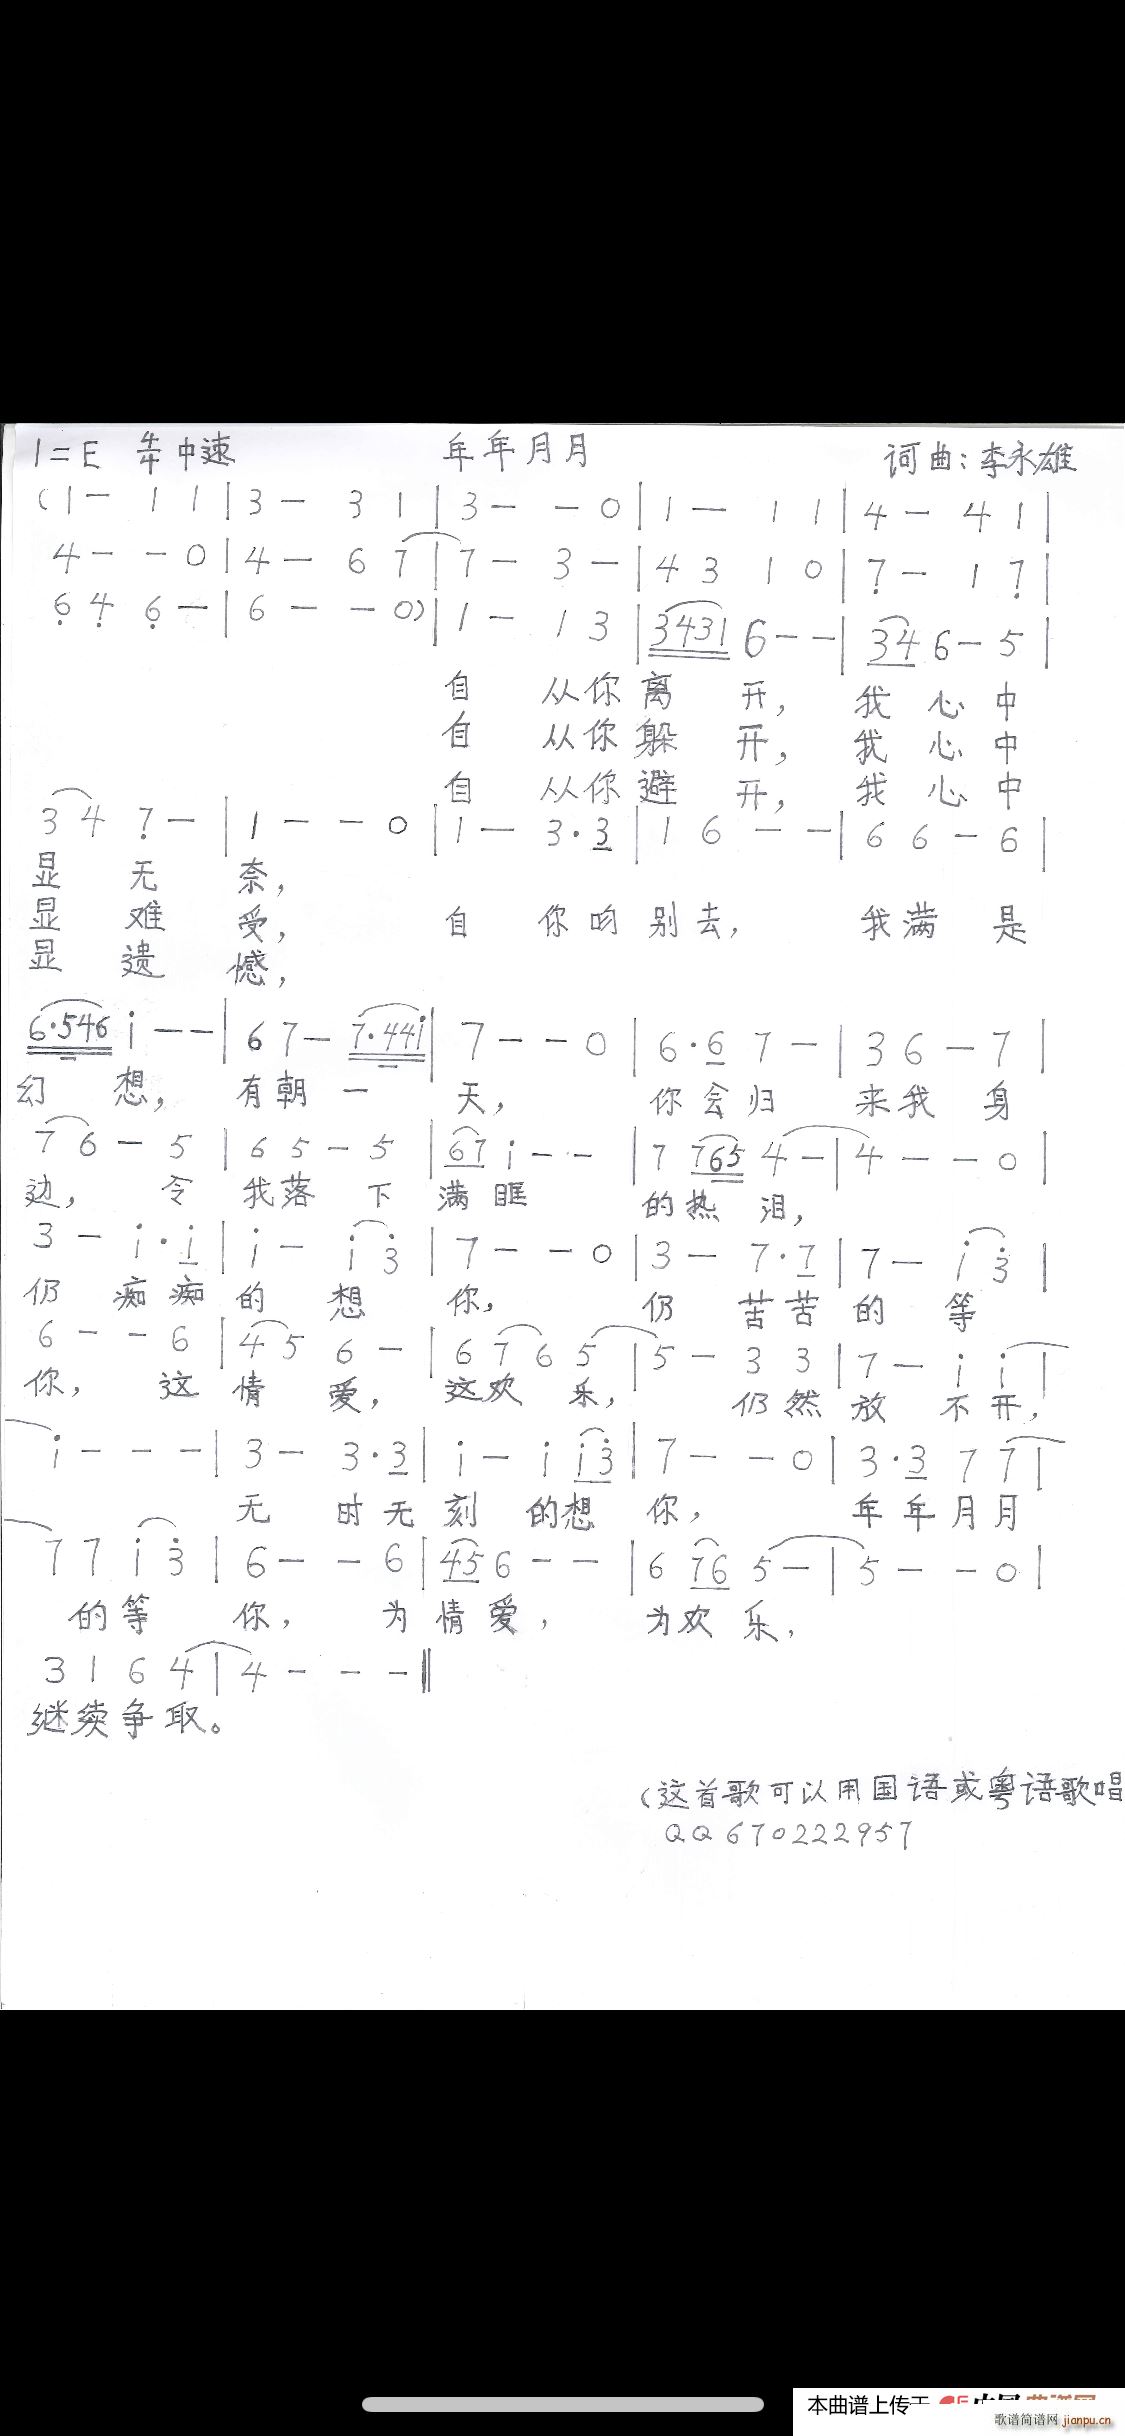 1=E 4/4 中速 年年月月 词曲:李永雄
(1 - 1 1 | 3 - 3 1 | 3 - - 0 | 1 - 1 1 | 4 - 4 1 |
4 - - 0 | 4 - 6 7 | 7 - 3 - | 4 3 1 0 | 7̣ - 1 7̣ |
6̣ 4̣ 6̣ - | 6 - - 0) | 1 - 1 3 | 3431 6 - - | 34 6 - 5 |
自 从你离 开, 我 心 中
自 从你躲 开, 我 心 中
自 从你避 开, 我 心 中
3 4 7̣ - | 1 - - 0 | 1 - 3·3 | 1 6 - - | 6 6 - 6 |
显 无 奈,
显 难 受, 自 你吻 别去, 我满 是
显 遗 憾,
6·546 i - - | 6 7 - 7·44i | 7 - - 0 | 6·6 7 - | 3 6 - 7 |
幻 想, 有朝 一 天, 你会归 来我 身
7 6 - 5 | 6 5 - 5 | 67 i - - | 7 765 4 - | 4 - - 0 |
边, 令 我落 下 满 眶 的热 泪,
3 - i·i | i - i 3̇ | 7 - - 0 | 3 - 7·7 | 7 - i 3̇ |
仍 痴痴 的 想 你, 仍 苦苦 的 等
6 - - 6 | 4 5 6 - | 6 7 6 5 | 5 - 3 3 | 7 - i i |
你, 这 情 爱, 这欢 乐, 仍然 放 不开,
i - - - | 3 - 3·3 | i - i i3̇ | 7 - - 0 | 3·3 7 7 |
无 时无 刻 的想 你, 年年月月
7 7 i 3̇ | 6 - - 6 | 45 6 - - | 6 76 5 - | 5 - - 0 |
的等 你, 为 情 爱, 为欢 乐,
3 1 6 4 | 4 - - - ‖
继续争取。
(这首歌可以用国语或粤语歌唱
QQ670222957
本曲谱上传于
歌谱简谱网 jianpu.cn